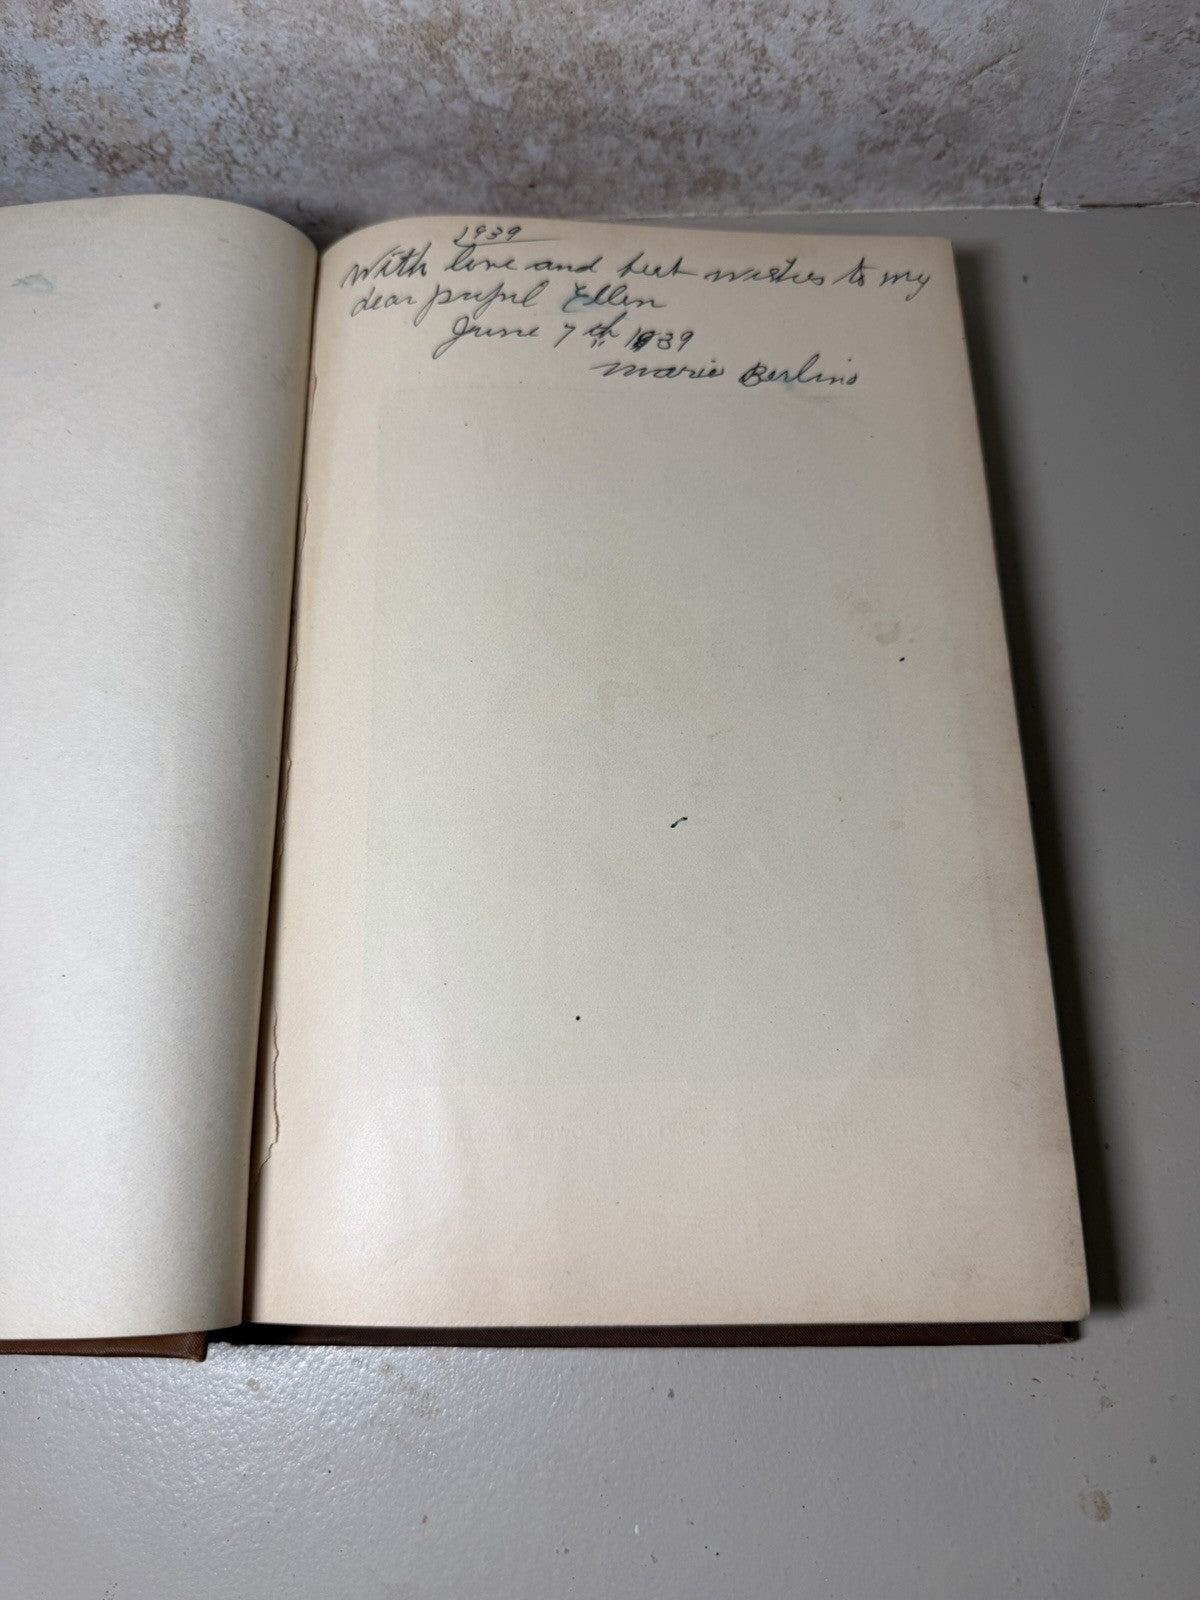 1939
With love and best wishes to my
dear pupil Ellen
June 7th 1939
Marie Berlino